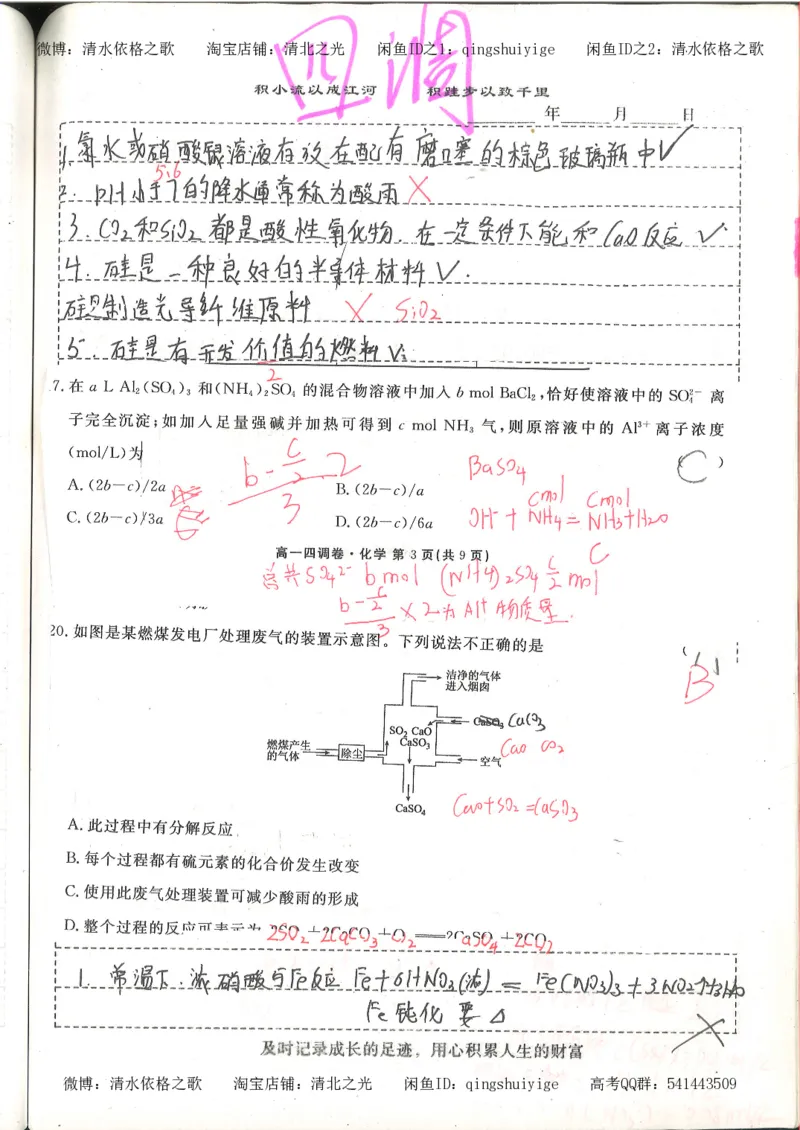 四调
微博：清水依格之歌 淘宝店铺：清北之光 闲鱼ID之1：qingshuiyige 闲鱼ID之2：清水依格之歌
积小流以成江河 积跬步以致千里
年 月 日
1. 氯水或硝酸银溶液存放在配有磨口塞的棕色玻璃瓶中√
5.6
2. pH小于7的降水通常称为酸雨 ×
3. CO₂和SiO₂都是酸性氧化物．在一定条件下能和CaO反应 √
4. 硅是一种良好的半导体材料√.
硅是制造光导纤维原料 × SiO₂
5. 硅是有开发价值的燃料√
17. 在 a L Al₂(SO₄)₃ 和(NH₄)₂SO₄ 的混合物溶液中加入 b mol BaCl₂,恰好使溶液中的 SO₄²⁻ 离
子完全沉淀;如加入足量强碱并加热可得到 c mol NH₃ 气,则原溶液中的 Al³⁺ 离子浓度
(mol/L)为 ( C )
A. (2b－c)/2a B. (2b－c)/a
C. (2b－c)/3a D. (2b－c)/6a
b-c/2
3
2
BaSO₄
cmol cmol
OH⁻+NH₄=NH₃+H₂O
高一四调卷·化学 第 3 页(共 9 页)
总共SO₄²⁻ bmol (NH4)₂SO₄ c/2 mol
b-c/2
3
×2为Al+物质量.
20. 如图是某燃煤发电厂处理废气的装置示意图。下列说法不正确的是 ( B )
洁净的气体
进入烟囱
CaCO₃
SO₂ CaO
CaSO₃
CaO CO₂
燃煤产生
的气体
除尘
空气
CaSO₄
CaO+SO₂=CaSO₃
A. 此过程中有分解反应
B. 每个过程都有硫元素的化合价发生改变
C. 使用此废气处理装置可减少酸雨的形成
D. 整个过程的反应可表示为 2SO₂+2CaCO₃+O₂══2CaSO₄+2CO₂
1. 常温下．浓硝酸与Fe反应 Fe+6HNO₃(浓) = Fe(NO₃)₃+3NO₂↑+3H₂O
Fe 钝化 要△
×
及时记录成长的足迹，用心积累人生的财富
微博：清水依格之歌 淘宝店铺：清北之光 闲鱼ID：qingshuiyige 高考QQ群：541443509